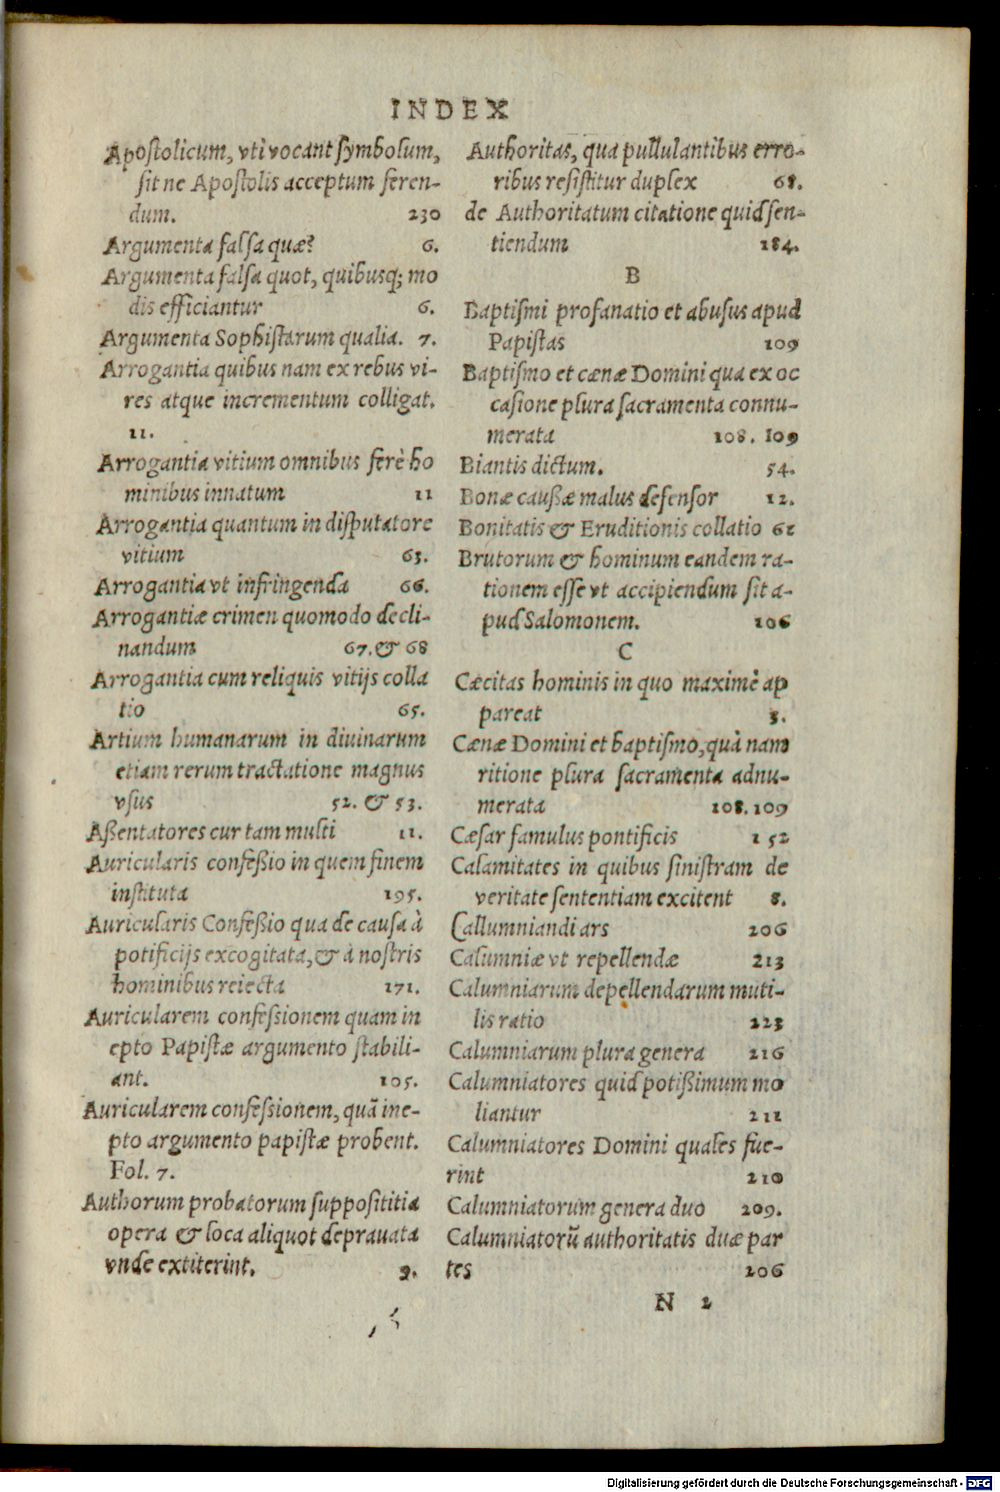 INDEX
Apostolicum, vti vocant symbolum,
sit ne Apostolis acceptum feren-
dum. 230
Argumenta falsa quæ? 6.
Argumenta falsa quot, quibusq; mo
dis efficiantur 6.
Argumenta Sophistarum qualia. 7.
Arrogantia quibus nam ex rebus vi-
res atque incrementum colligat.
11.
Arrogantia vitium omnibus ferè ho
minibus innatum 11
Arrogantia quantum in disputatore
vitium 63.
Arrogantia vt infringenda 66.
Arrogantiæ crimen quomodo decli-
nandum 67. & 68
Arrogantia cum reliquis vitijs colla
tio 65.
Artium humanarum in diuinarum
etiam rerum tractatione magnus
vsus 52. & 53.
Aßentatores cur tam multi 11.
Auricularis confeßio in quem finem
instituta 195.
Auricularis Confeßio qua de causa à
potificijs excogitata, & à nostris
hominibus reiecta 171.
Auricularem confessionem quam in
epto Papistæ argumento stabili-
ant. 105.
Auricularem confessionem, quã ine-
pto argumento papistæ probent.
Fol. 7.
Authorum probatorum supposititia
opera & loca aliquot deprauata
vnde extiterint. 9.
Authoritas, qua pullulantibus erro-
ribus resistitur duplex 68.
de Authoritatum citatione quid sen-
tiendum 184.
B
Baptismi profanatio et abusus apud
Papistas 109
Baptismo et cænæ Domini qua ex oc
casione plura sacramenta connu-
merata 108. 109
Biantis dictum. 54.
Bonæ caußæ malus defensor 12.
Bonitatis & Eruditionis collatio 62
Brutorum & hominum eandem ra-
tionem esse vt accipiendum sit a-
pud Salomonem. 106
C
Cæcitas hominis in quo maximè ap
pareat 3.
Cænæ Domini et baptismo, quà nam
ritione plura sacramenta adnu-
merata 108. 109
Cæsar famulus pontificis 152
Calamitates in quibus sinistram de
veritate sententiam excitent 8.
Callumniandi ars 206
Calumniæ vt repellendæ 213
Calumniarum depellendarum muti-
lis ratio 223
Calumniarum plura genera 216
Calumniatores quid potißimum mo
liantur 211
Calumniatores Domini quales fue-
rint 210
Calumniatorum genera duo 209.
Calumniatorũ authoritatis duæ par
tes 206
N 2
Digitalisierung gefördert durch die Deutsche Forschungsgemeinschaft - DFG